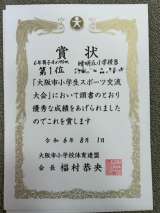 賞状
第1位
「大阪市小学生スポーツ交流
大会」において頭書のとおり
優秀な成績をあげられました
のでこれを賞します
令和6年8月1日
大阪市小学校体育連盟
会長 福村恭央